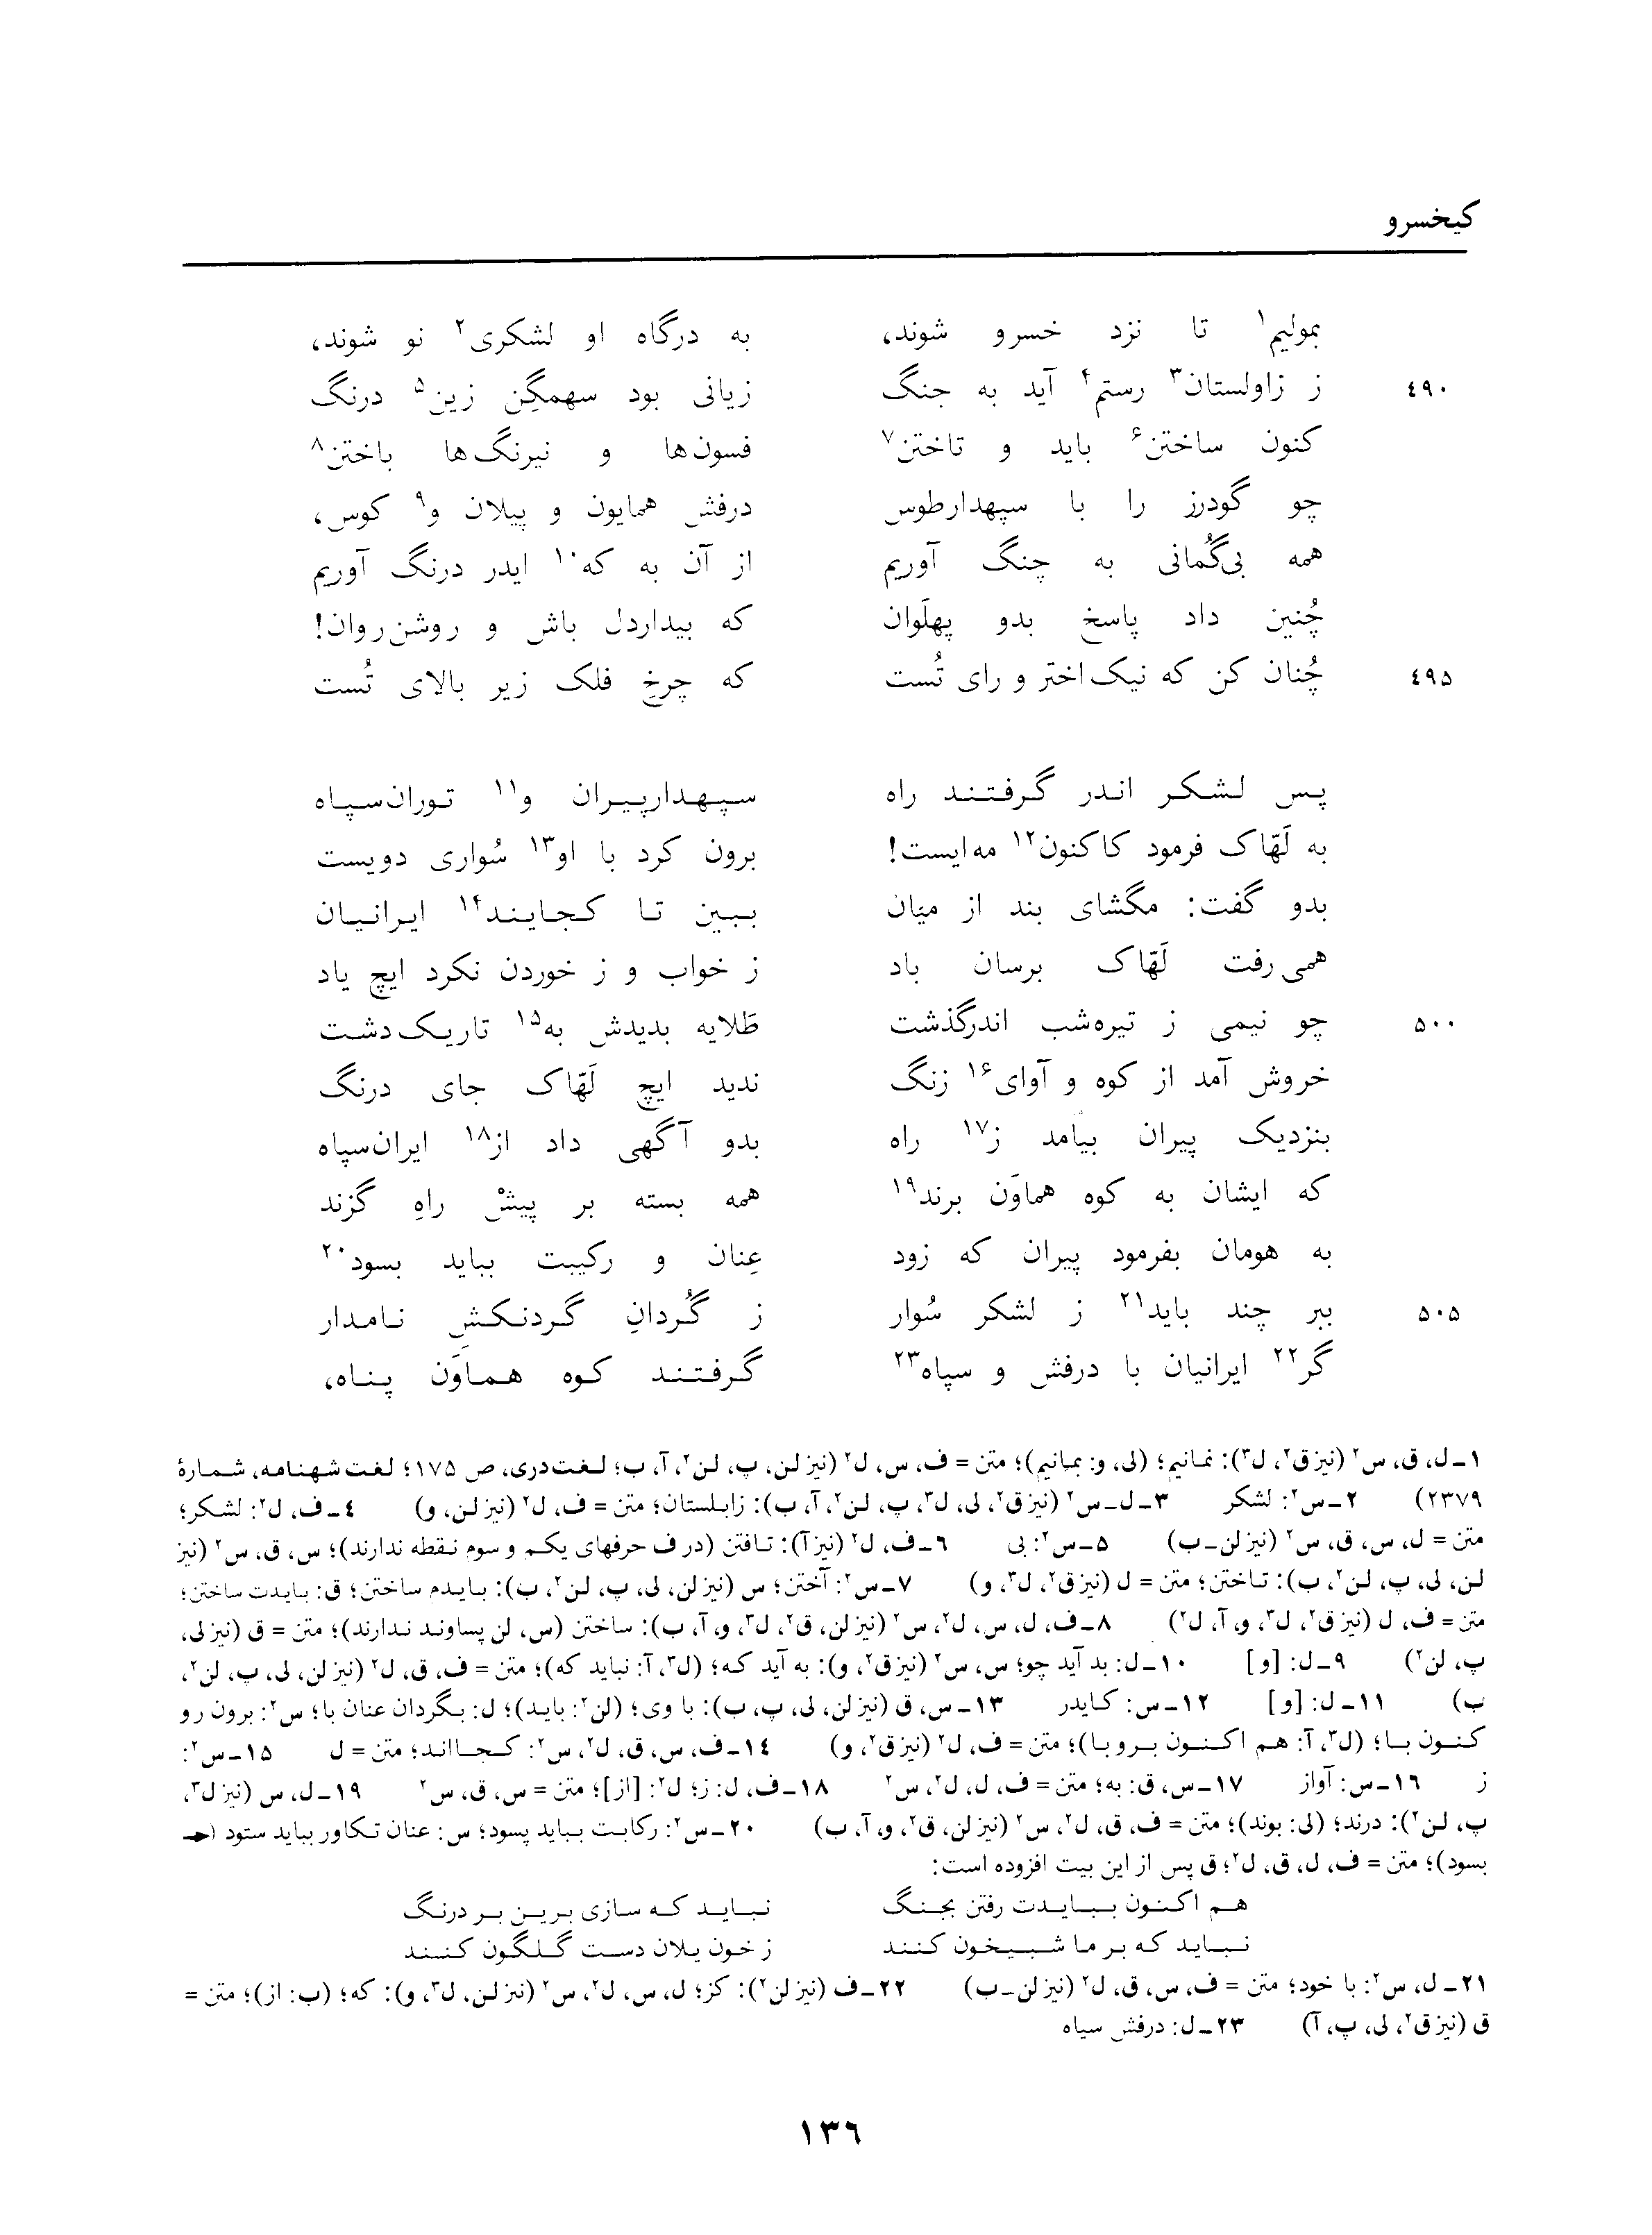 کیخسرو
بمولیم۱ تا نزد خسرو شوند، به درگاه او لشکری۲ نو شوند،
۴۹۰ ز زاولستان۳ رستم۴ آید به جنگ زیانی بود سهمگِن زین۵ درنگ
کنون ساختن۶ باید و تاختن۷ فسون‌ها و نیرنگ‌ها باختن۸
چو گودرز را با سپهدارطوس درفش همایون و پیلان و۹ کوس،
همه بی‌گُمانی به چنگ آوریم از آن به که۱۰ ایدر درنگ آوریم
چُنین داد پاسخ بدو پهلَوان که بیداردل باش و روشن‌روان!
۴۹۵ چُنان کن که نیک‌اختر و رای تُست که چرخِ فلک زیر بالای تُست
پس لشکر اندر گرفتند راه سپهدارپیران و۱۱ توران‌سپاه
به لَهّاک فرمود کاکنون۱۲ مه‌ایست! برون کرد با او۱۳ سُواری دویست
بدو گفت: مگشای بند از میان ببین تا کجایند۱۴ ایرانیان
همی‌رفت لَهّاک برسان باد ز خواب و ز خوردن نکرد ایچ یاد
۵۰۰ چو نیمی ز تیره‌شب اندرگذشت طَلایه بدیدش به۱۵ تاریک‌دشت
خروش آمد از کوه و آوای۱۶ زنگ ندید ایچ لَهّاک جای درنگ
بنزدیک پیران بیامد ز۱۷ راه بدو آگهی داد از۱۸ ایران‌سپاه
که ایشان به کوه هماوَن برند۱۹ همه بسته بر پیشْ راهِ گزند
به هومان بفرمود پیران که زود عِنان و رکیبت بباید بسود۲۰
۵۰۵ ببر چند باید۲۱ ز لشکر سُوار ز گُردانِ گردنکشِ نامدار
گر۲۲ ایرانیان با درفش و سپاه۲۳ گرفتند کوه هماوَن پناه،
۱ـ ل، ق، س۲ (نیز ق۲، ل۳): نمانیم؛ (لی، و: بمانیم)؛ متن = ف، س، ل۲ (نیز لن، پ، لن۲، آ، ب؛ لغت‌دری، ص ۱۷۵؛ لغت‌شهنامه، شمارهٔ
۲۳۷۹) ۲ـ س۲: لشکر ۳ـ ل ـ س۲ (نیز ق۲، لی، ل۳، پ، لن۲، آ، ب): زابلستان؛ متن = ف، ل۲ (نیز لن، و) ۴ـ ف، ل۲: لشکر؛
متن = ل، س، ق، س۲ (نیز لن ـ ب) ۵ـ س۲: بی ۶ـ ف، ل۲ (نیز آ): تافتن (در ف حرفهای یکم و سوم نقطه ندارند)؛ س، ق، س۲ (نیز
لن، لی، پ، لن۲، ب): تاختن؛ متن = ل (نیز ق۲، ل۳، و) ۷ـ س۲: آختن؛ س (نیز لن، لی، پ، لن۲، ب): بایدم ساختن؛ ق: بایدت ساختن؛
متن = ف، ل (نیز ق۲، ل۳، و، آ، ل۲) ۸ـ ف، ل، س، ل۲، س۲ (نیز لن، ق۲، ل۳، و، آ، ب): ساختن (س، لن پساوند ندارند)؛ متن = ق (نیز لی،
پ، لن۲) ۹ـ ل: [و] ۱۰ـ ل: بد آید چو؛ س، س۲ (نیز ق۲، و): به آید که؛ (ل۳، آ: نباید که)؛ متن = ف، ق، ل۲ (نیز لن، لی، پ، لن۲،
ب) ۱۱ـ ل: [و] ۱۲ـ س: کایدر ۱۳ـ س، ق (نیز لن، لی، پ، ب): با وی؛ (لن۲: باید)؛ ل: بگردان عنان با؛ س۲: برون رو
کنون با؛ (ل۳، آ: هم اکنون برو با)؛ متن = ف، ل۲ (نیز ق۲، و) ۱۴ـ ف، س، ق، ل۲، س۲: کجااند؛ متن = ل ۱۵ـ س۲:
ز ۱۶ـ س: آواز ۱۷ـ س، ق: به؛ متن = ف، ل، ل۲، س۲ ۱۸ـ ف، ل: ز؛ ل۲: [از]؛ متن = س، ق، س۲ ۱۹ـ ل، س (نیز ل۳،
پ، لن۲): درند؛ (لی: بوند)؛ متن = ف، ق، ل۲، س۲ (نیز لن، ق۲، و، آ، ب) ۲۰ـ س۲: رکابت بباید پسود؛ س: عنان تکاور بباید ستود (←
بسود)؛ متن = ف، ل، ق، ل۲؛ ق پس از این بیت افزوده است:
هم اکنون ببایدت رفتن بجنگ نباید که سازی برین بر درنگ
نباید که بر ما شبیخون کنند ز خون یلان دست گلگون کنند
۲۱ـ ل، س۲: با خود؛ متن = ف، س، ق، ل۲ (نیز لن ـ ب) ۲۲ـ ف (نیز لن۲): کز؛ ل، س، ل۲، س۲ (نیز لن، ل۳، و): که؛ (ب: از)؛ متن =
ق (نیز ق۲، لی، پ، آ) ۲۳ـ ل: درفش سیاه
۱۳۶